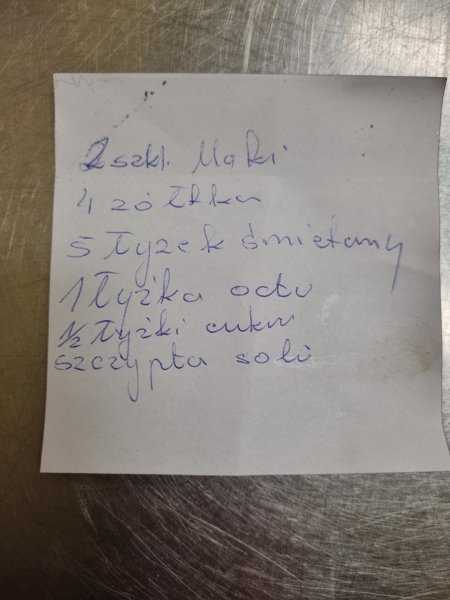 2 szkl. Mąki
4 żółtka
5 łyżek śmietany
1 łyżka octu
1/2 łyżki cukru
szczypta soli